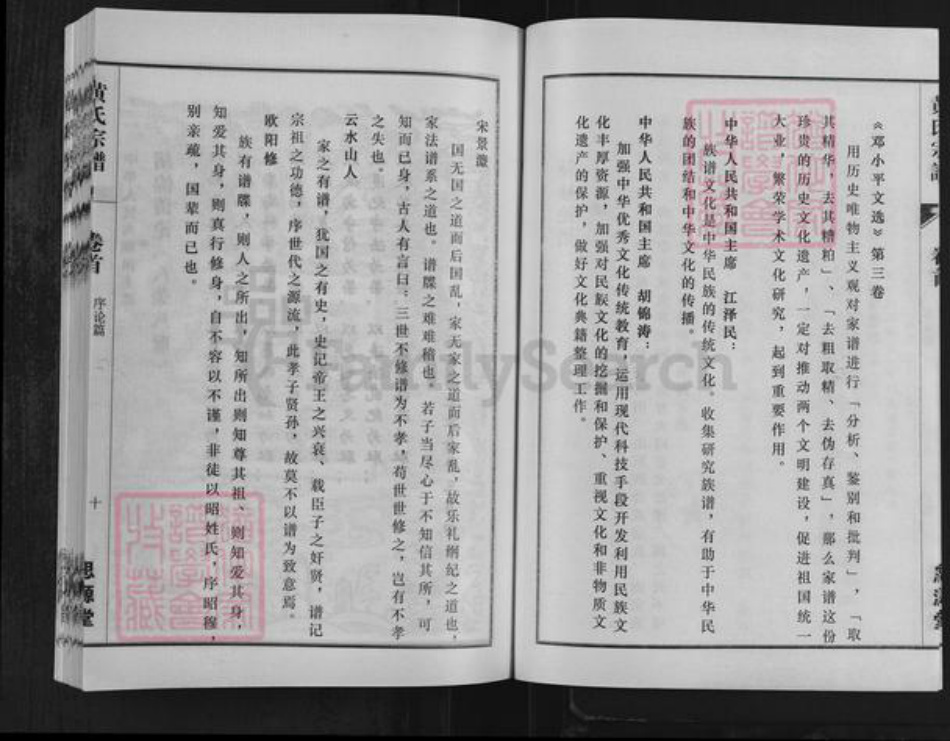 《邓小平文选》第三卷
用历史唯物主义观对家谱进行「分析、鉴别和批判」，「取
其精华，去其精粕」、「去粗取精、去伪存真」，那么家谱这份
珍贵的历史文化遗产，一定对推动两个文明建设，促进祖国统一
大业，繁荣学术文化研究，起到重要作用。
中华人民共和国主席 江泽民：
族谱文化是中华民族的传统文化。收集研究族谱，有助于中华民
族的团结和中华文化的传播。
中华人民共和国主席 胡锦涛：
加强中华优秀文化传统教育，运用现代科技手段开发利用民族文
化丰厚资源，加强对民族文化的挖掘和保护、重视文化和非物质文
化遗产的保护，做好文化典籍整理工作。
宋景濂
国无国之道而后国乱，家无家之道而后家乱，故乐礼纲纪之道也，
家法谱系之道也。谱牒之难难稽也，若子当尽心于不知信其所，可
知而已身，古人有言曰：三世不修谱为不孝，苟世世修之，岂有不孝
之失也。
云水山人
家之有谱，犹国之有史，史记帝王之兴衰、载臣子之奸贤，谱记
宗祖之功德，序世代之源流，此孝子贤孙，故莫不以谱为致意焉。
欧阳修
族有谱牒，则人之所出，知所出则知尊其祖、则知爱其身，
知爱其身，则真行修身，自不容以不谨，非徒以昭姓氏，序昭穆，
别亲疏，国荤而已也。
黄氏宗谱
卷首
序论篇
十
思源堂
FamilySearch